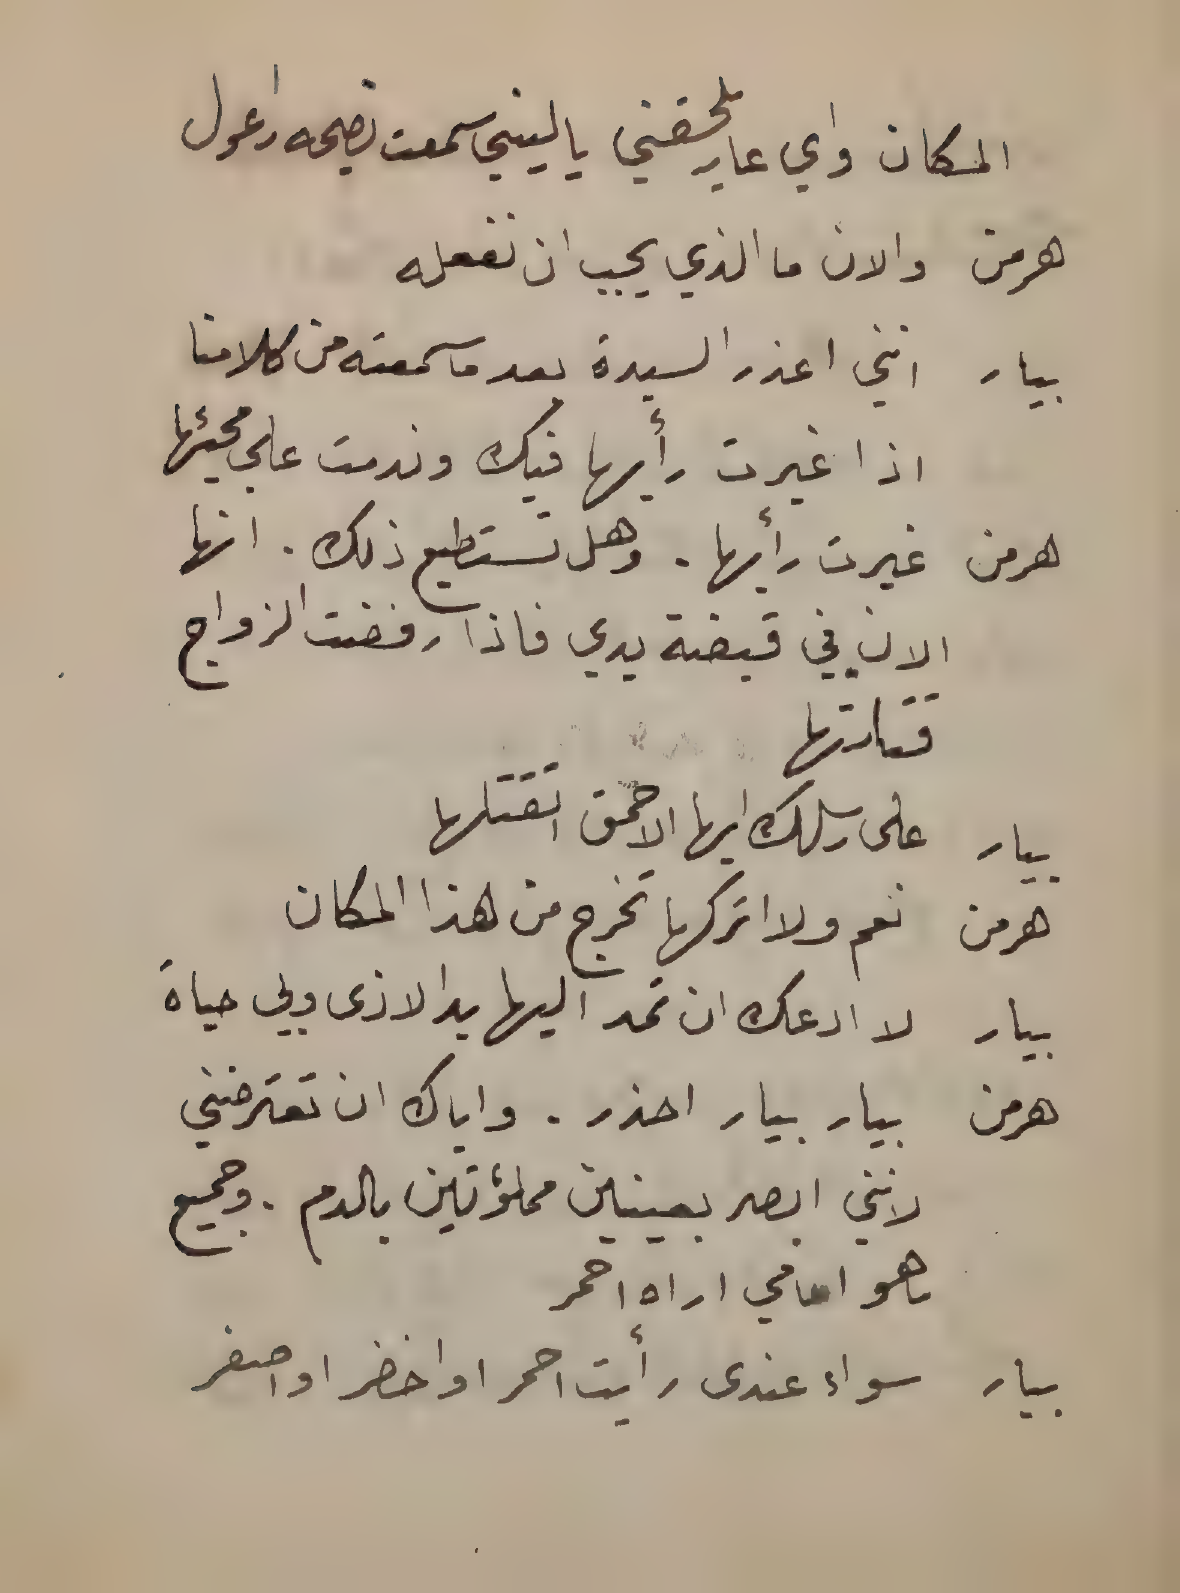 المكان واي عار يلحقني ياليتني سمعت نصيحه راعول
هرمن والان ما الذي يجب ان نفعله
بيار انني اعذر السيدة بعد ما سمعته من كلامنا
اذا غيرت رأيها فيك وندمت على مجيئها
هرمن غيرت رأيها . وهل تستطيع ذلك . انها
الان في قبضة يدي فاذا رفضت الزواج
قتلتها
بيار على رسلك ايها الاحمق اتقتلها
هرمن نعم ولا اتركها تخرج من هذا المكان
بيار لا ادعك ان تمد اليها يد الاذى وبي حياة
هرمن بيار بيار احذر . واياك ان تعترضني
لانني ابصر بعينين مملؤتين بالدم . وجميع
ماهو امامي اراه احمر
بيار سواء عندى رأيت احمر او اخضر او اصفر